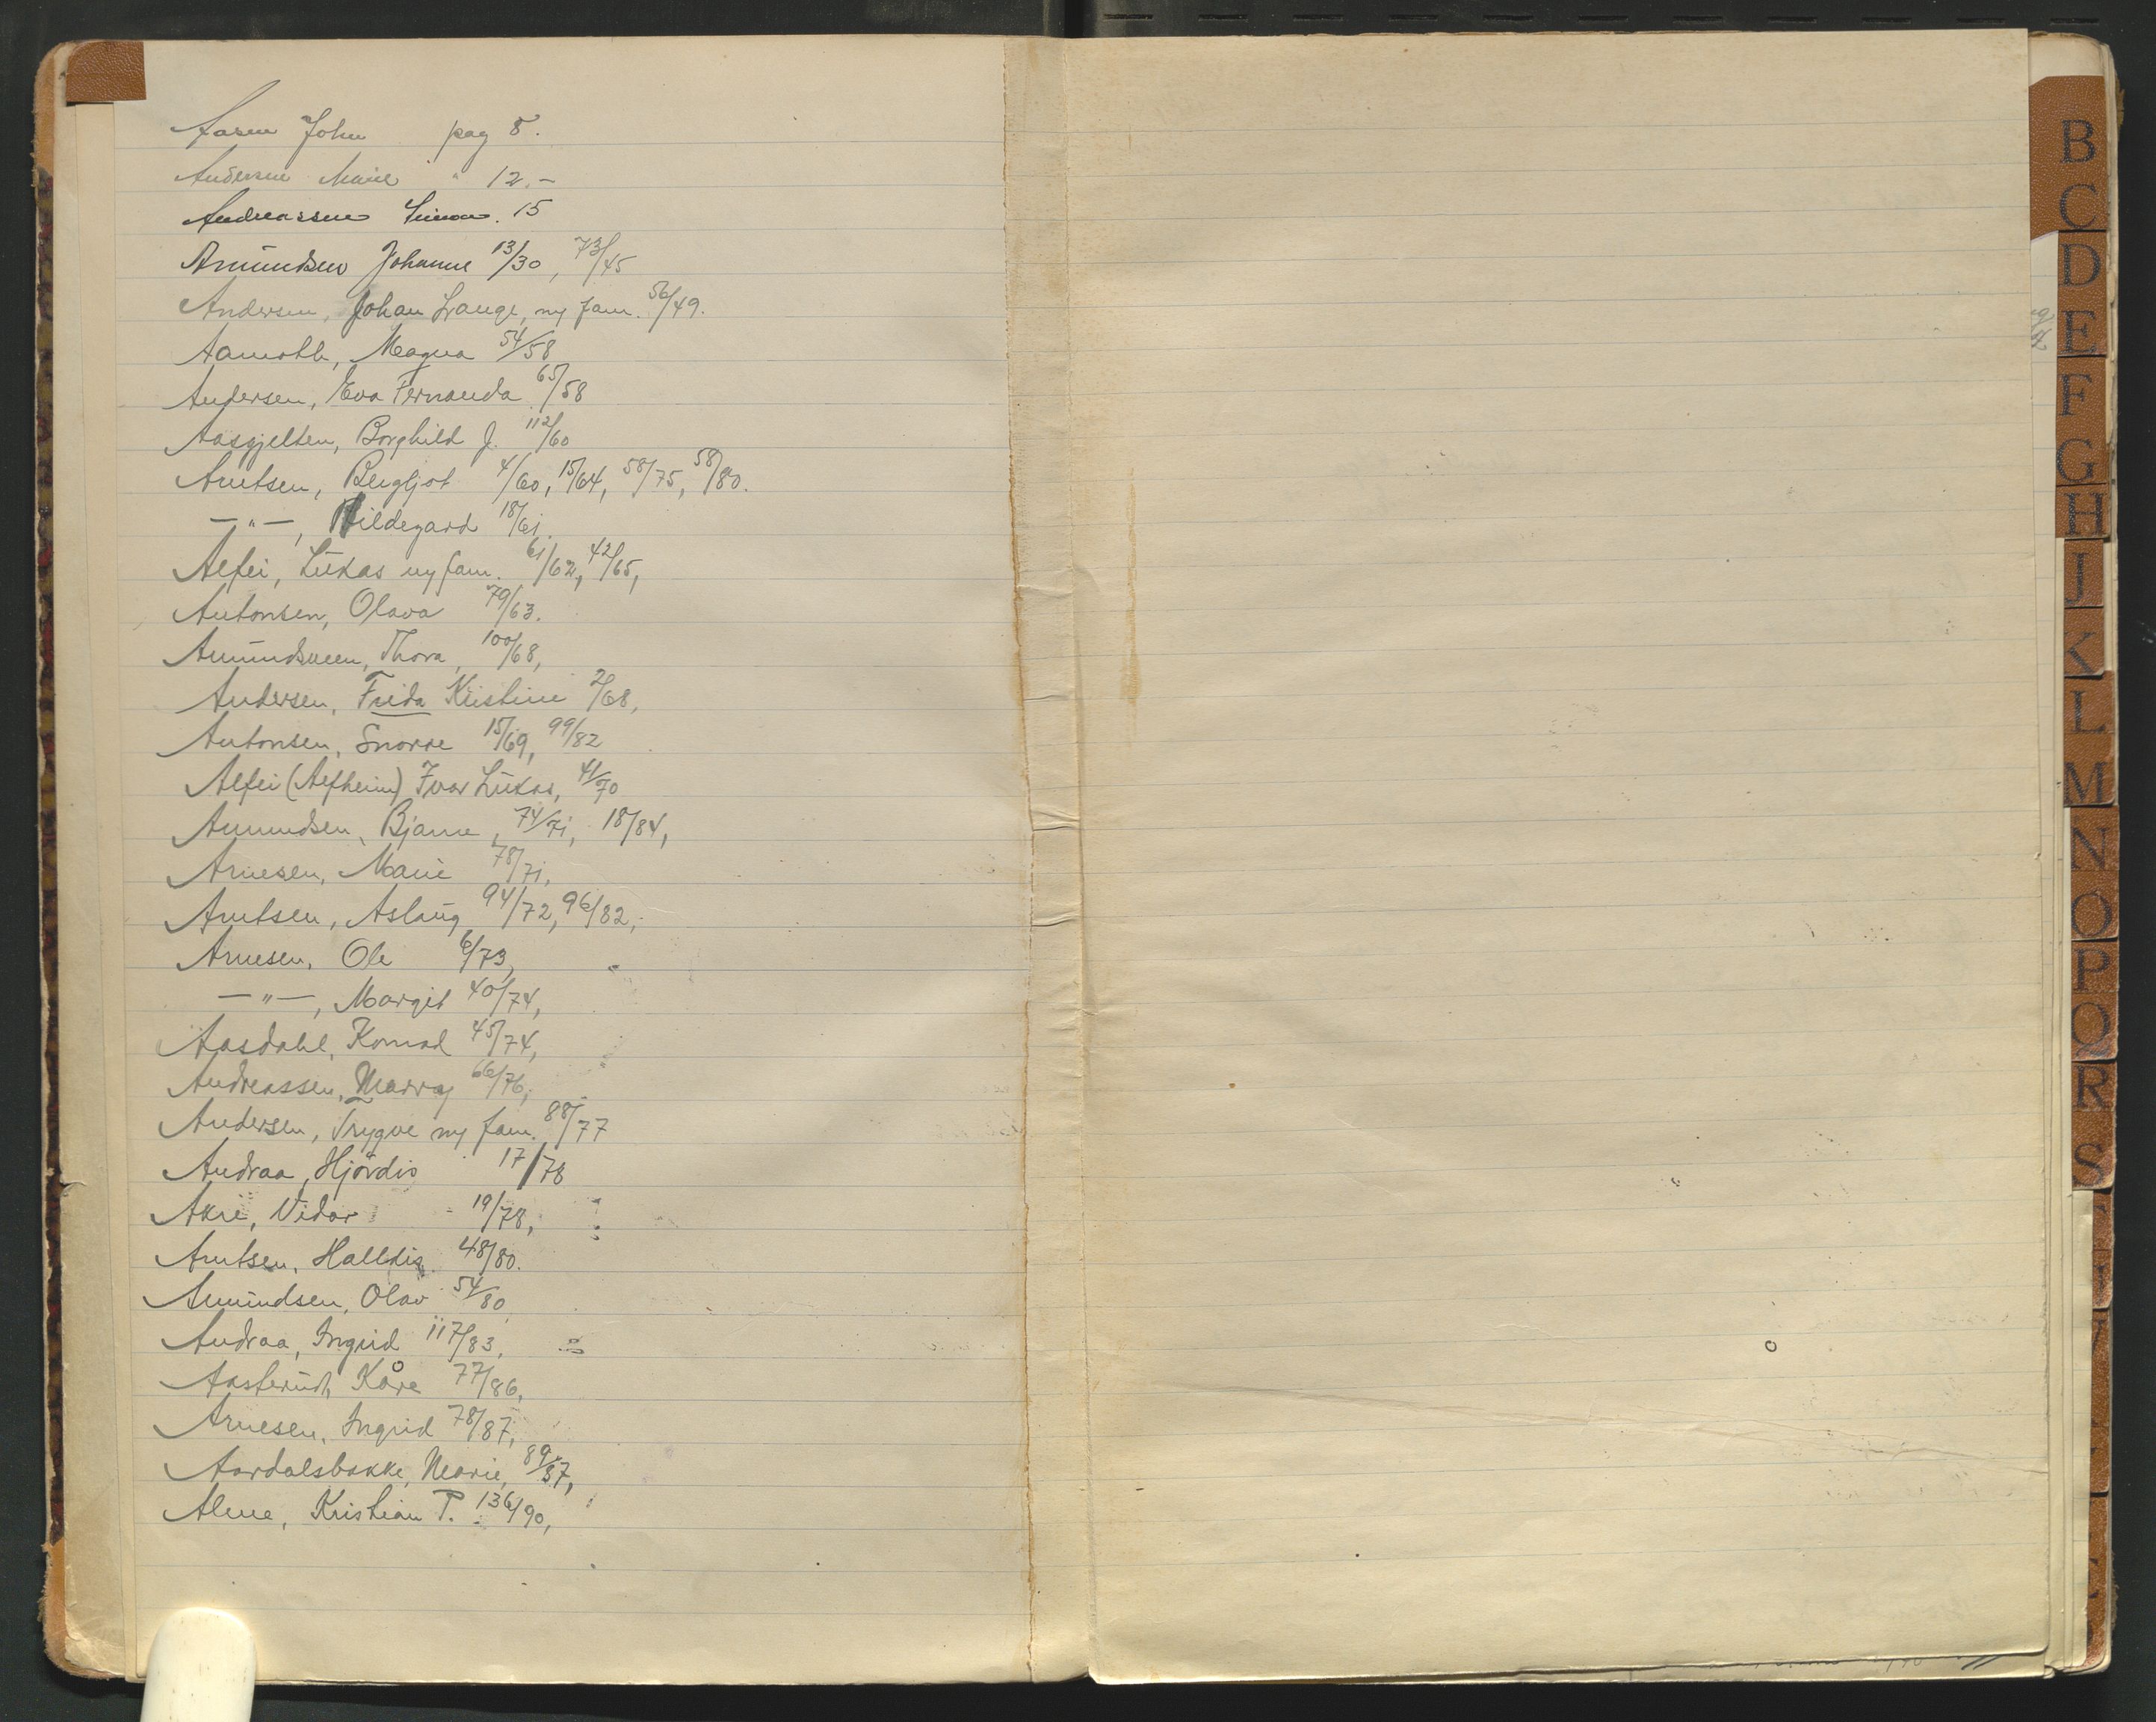 Aasen John pag 8.
Andersen Marie " 12.-
Andreassen Simon. 15
Amundsen Johanne 13/30, 73/45
Andersen, Johan Lange, m/ fam. 56/49.
Aamoth, Magna 54/58
Andersen, Eva Fernanda 65/58
Aasgjelten, Borghild J. 112/60
Arntsen, Bergljot 4/60, 15/64, 58/75, 58/80.
—"—, Hildegard 18/61.
Alfei, Lukas m/ fam. 61/62, 42/65,
Antonsen, Olava 79/63.
Amundsveen, Thora, 100/68,
Andersen, Frida Kristine 2/68,
Antonsen, Snorre 15/69, 99/82
Alfei (Alfheim) Ivar Lukas, 41/70
Amundsen, Bjarne, 74/71, 18/84,
Arnesen, Marie 78/71,
Arntsen, Aslaug 94/72, 96/82,
Arnesen, Ole 6/73,
—"—, Margit 40/74,
Aasdahl, Konrad 45/74,
Andreassen, Marry 66/76,
Andersen, Trygve m/ fam. 88/77
Andraa, Hjördis 17/78
Akre, Vidar 19/78,
Arntsen, Halldis 48/80.
Amundsen, Olav 54/80
Andraa, Ingrid 117/83,
Aasterud, Kåre 77/86,
Arnesen, Ingrid 78/87,
Aardalsbakke, Marie, 89/87,
Alme, Kristian P. 136/90,
B
C
D
E
F
G
H
I
K
L
M
N
O
P
Q
R
S